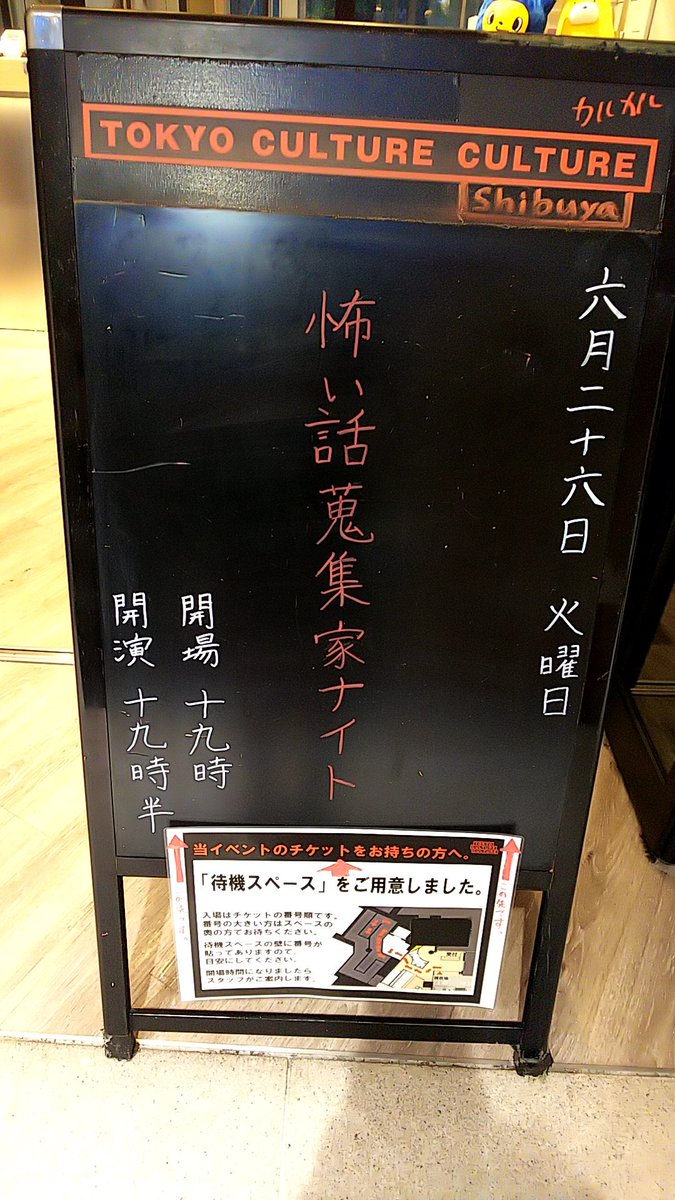 カルカル
TOKYO CULTURE CULTURE
Shibuya
六月二十六日 火曜日
怖い話蒐集家ナイト
開場 十九時
開演 十九時半
当イベントのチケットをお持ちの方へ。
「待機スペース」をご用意しました。
入場はチケットの番号順です。
番号の大きい方はスペースの
奥の方でお待ちください。
待機スペースの壁に番号が
貼ってありますので、
目安にしてください。
開場時間になりましたら
スタッフがご案内します。
受付
この先です。
この先です。